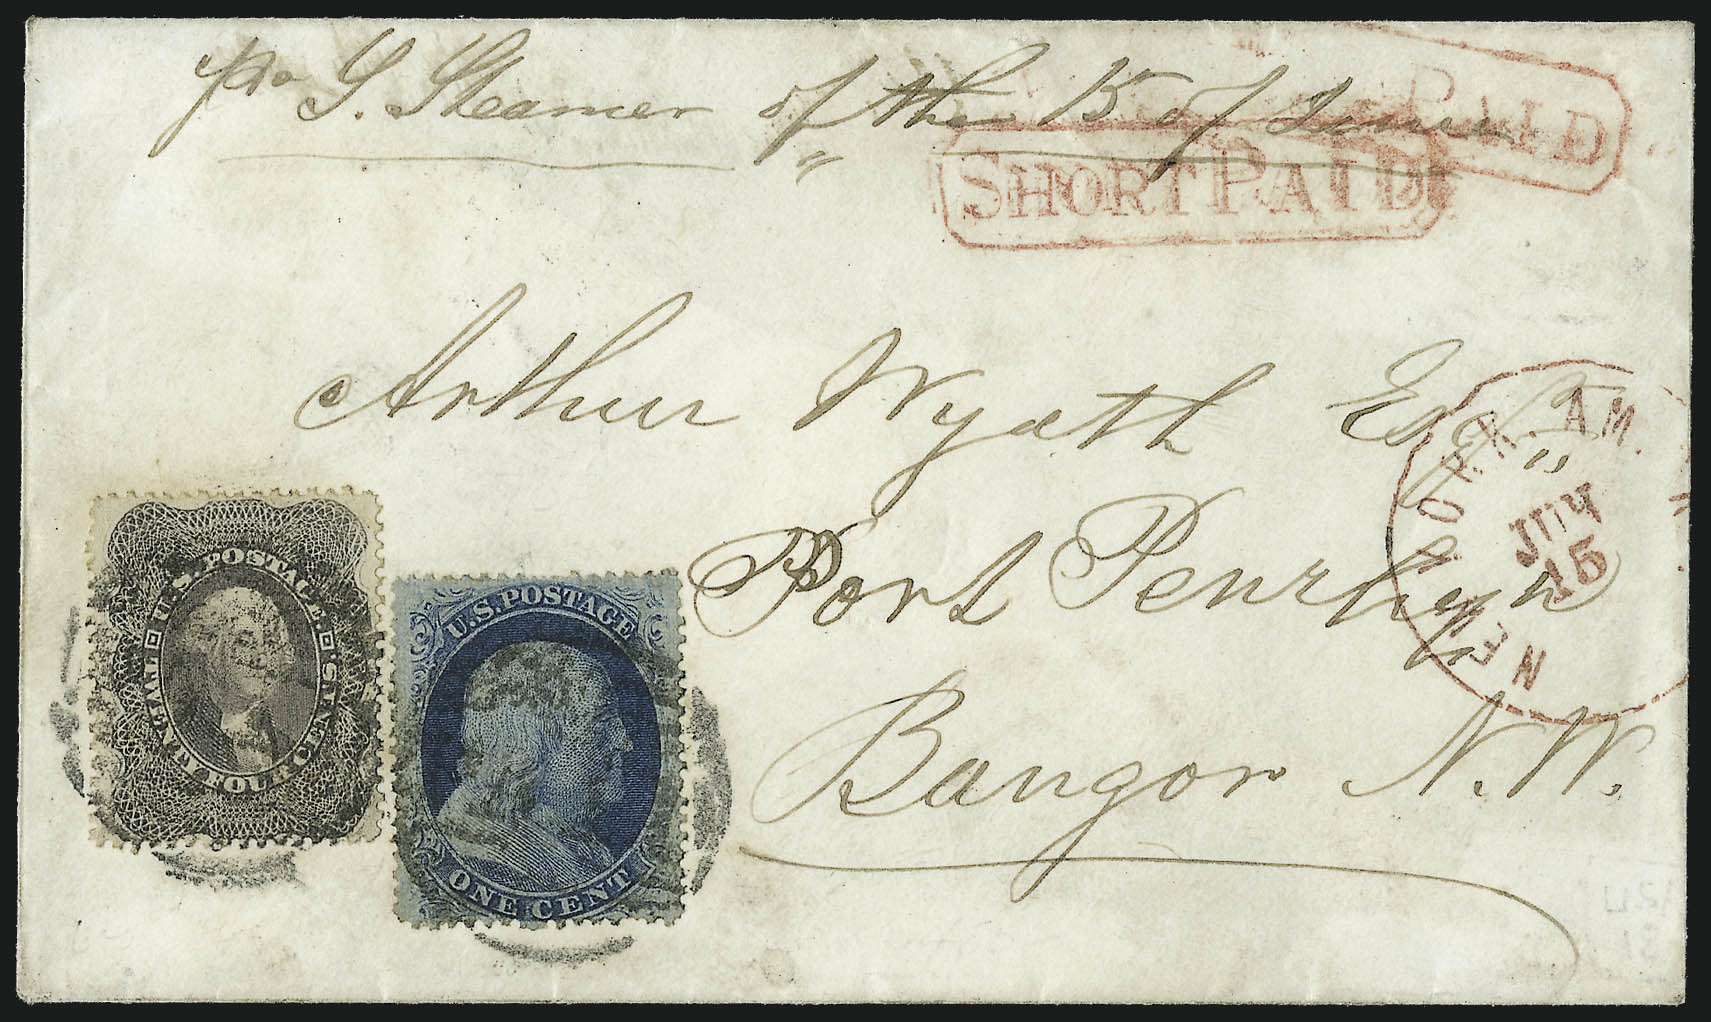 pr S. Steamer of the 15 of June
PAID
SHORT PAID
Arthur Wyath Esqr
NEW YORK. AM.
JUN
15
Port Penrhyn
Bangor N.W.
U.S. POSTAGE.
TWENTY FOUR CENTS.
U.S. POSTAGE
ONE CENT